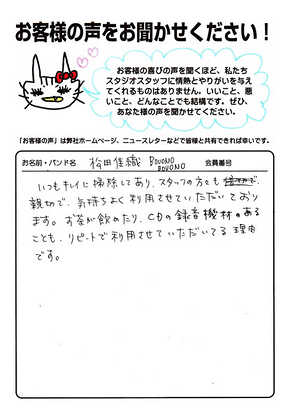 お客様の声をお聞かせください！
お客様の喜びの声を聞くほど、私たち
スタジオスタッフに情熱とやりがいを与え
てくれるものはありません。いいこと、悪
いこと、どんなことでも結構です。ぜひ、
あなた様の声を聞かせてください。
「お客様の声」は弊社ホームページ、ニュースレターなどで皆様と共有できれば幸いです。
お名前・バンド名 松田佳織 BOVONO BOVONO 会員番号
いつもキレイに掃除してあり、スタッフの方々も
親切で、気持ちよく利用させていただいており
ます。お茶が飲めたり、CDの録音機材があると
ことも、リピートで利用させていただいてる理由
です。